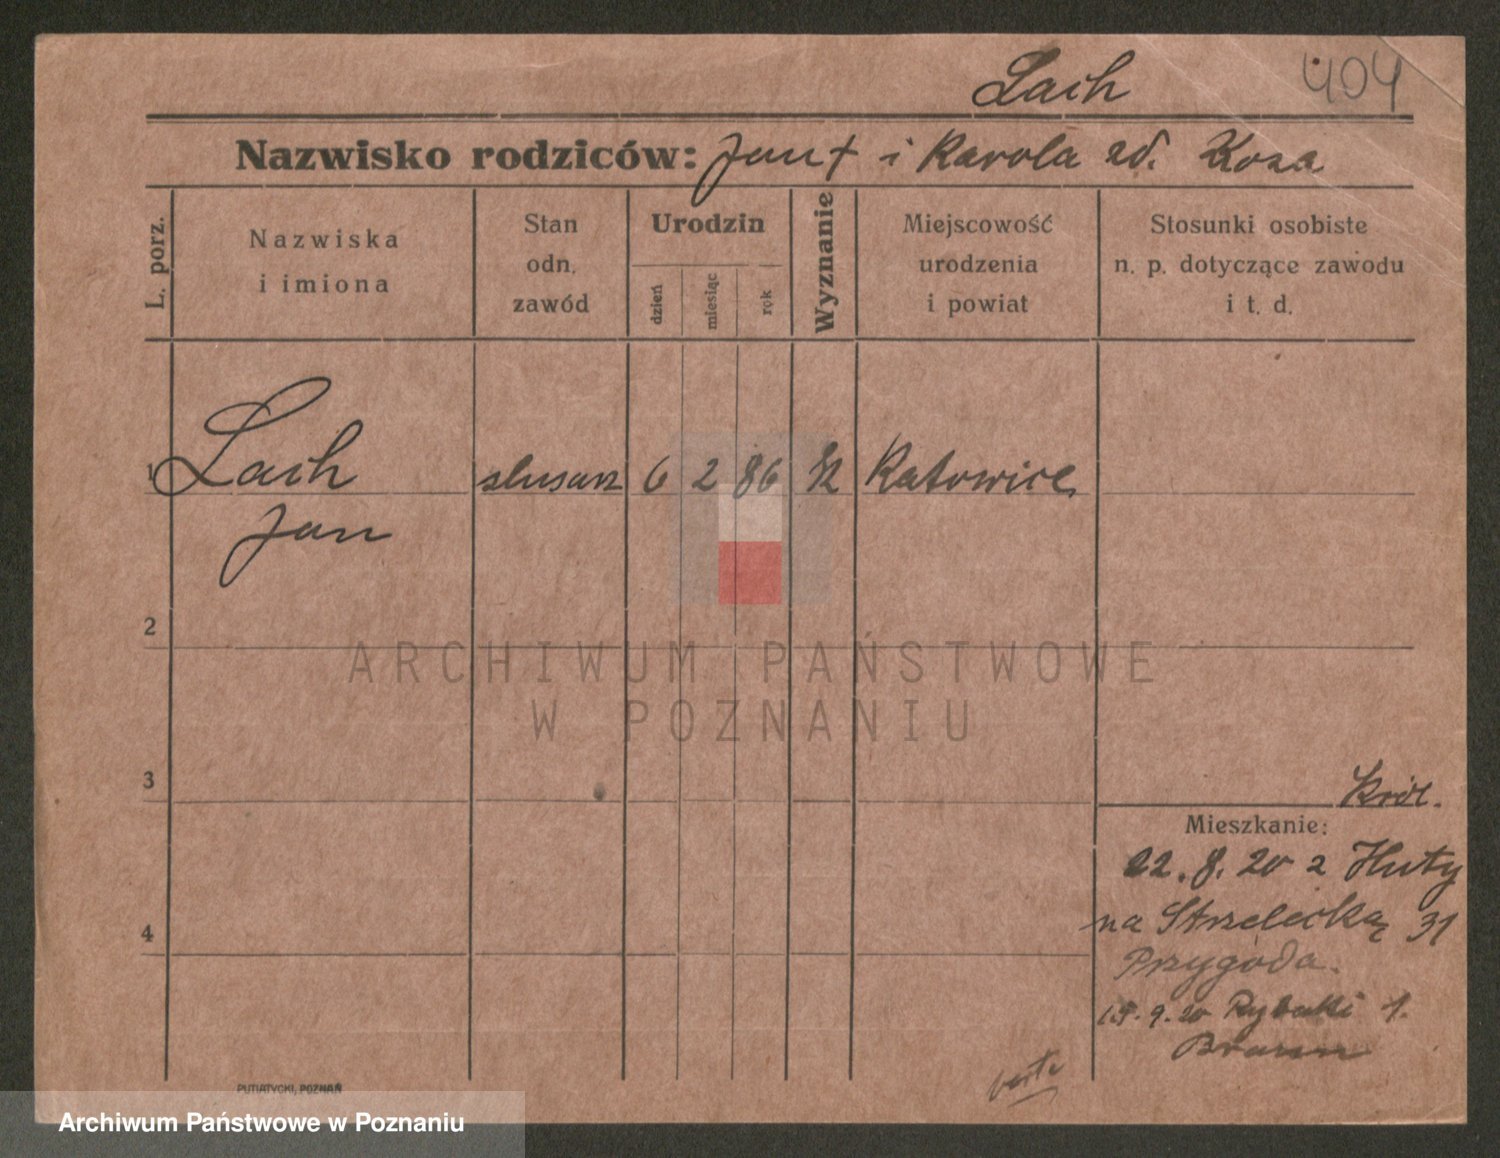 Lach 404
Nazwisko rodziców: Jan † i Karola zd. Koza
L. porz.
Nazwiska
i imiona
Stan
odn.
zawód
Urodzin
dzień
miesiąc
rok
Wyznanie
Miejscowość
urodzenia
i powiat
Stosunki osobiste
n. p. dotyczące zawodu
i t. d.
1 Lach ślusarz 6 2 86 Katowice
Jan
2
ARCHIWUM PAŃSTWOWE
W POZNANIU
3
Król.
Mieszkanie:
22.8.20 z Huty
na Strzelecką 31
4
Przygoda.
15.9.20 Rybaki 1.
verte
PUTIATYCKI, POZNAŃ
Archiwum Państwowe w Poznaniu